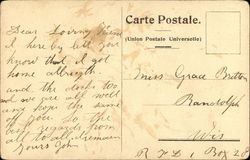 Dear Loving friend
I here by let you
know that I got
home allright.
and the dogs too
and we are all well
and hope the same
of you. So the
best regards from
all to all. I remain
yours John
Carte Postale.
(Union Postale Universelle)
Miss Grace Britton
Randolph
Wis
R F D 1 Box 20